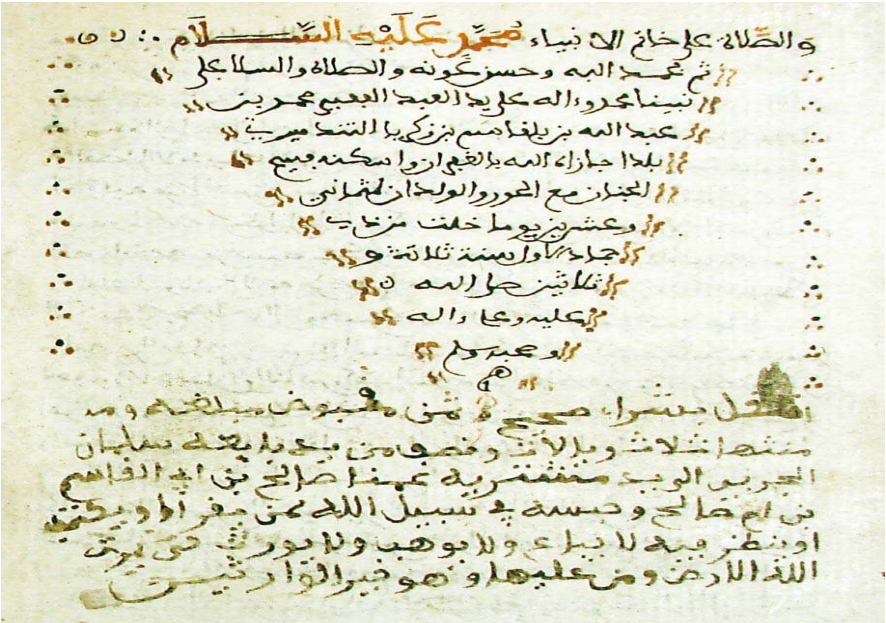 والصلاة على خاتم الانبياء محمد عليه السلام
ثم بحمد الله وحسن عونه والصلاة والسلا على
نبينا محمد وءاله على يد العبد الفقير محمد بن
عبد الله بن بلقاسم بن زكريا
بلدا جازاه الله بالغفران واسكنه فسيح
الجنان مع الحور والولدان لثماني
وعشرين يوما خلت من
جماد الاول سنة ثلاثة و
ثلاثين صلى الله
عليه وعلى ءاله
وصحبه وسلم
انتقل بشراء صحيح و ثمن مقبوض
ثلاث وقبض من يد بايعه سليمان
الى يد مشتريه عمنا صالح بن ابي القاسم
بن صالح وحبسه في سبيل الله لمن يقرا او
او ينظر فيه لا يباع ولا يوهب ولا يورث حتى يرث
الله الارض ومن عليها وهو خير الوارثين